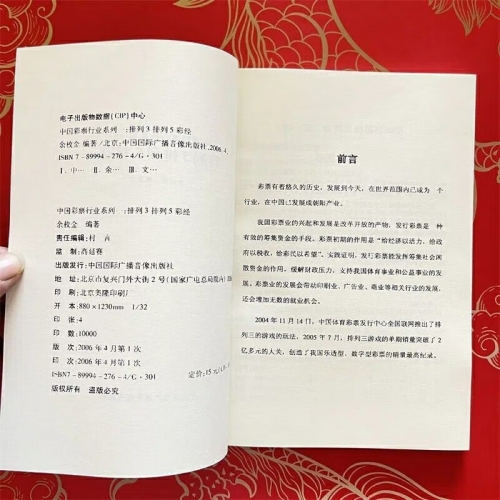 电子出版物数据(CIP)中心
中国彩票行业系列 :排列3排列5彩经
余枚全 编著/北京:中国国际广播音像出版社,2006.4,
ISBN 7-89994-276-4/G·301
Ⅰ.中… Ⅱ.余… Ⅲ.文…
中国彩票行业系列 :排列3排列5彩经
余枚全 编著
责任编辑:村 卉
监 制:高延赛
出版发行:中国国际广播音像出版社
地 址:北京市复兴门外大街2号(国家广电总局院内)
印 刷:北京美隆印刷厂
开 本:880×1230mm 1/32
印 张:4
印 数:10000
版 次:2006年4月第1次
印 次:2006年4月第1次
ISBN7-89994-276-4/G·301
定价:15元
版权所有 盗版必究
前言
彩票有着悠久的历史,发展到今天,在世界范围内已成为 个
行业,在中国已发展成朝阳产业。
我国彩票业的兴起和发展是改革开放的产物,发行彩票是一种
有效的筹集资金的手段。彩票初期的作用是“给经济以活力,给政
府以税收,给彩民以希望”。实践证明,发行彩票能发挥筹集社会闲
散资金的作用,缓解财政压力,支持我国体育事业和公益事业的发
展,彩票业的发展会带动印刷业、广告业、商业等相关行业的发展,
还会增加无数的就业机会。
2004年11月14日,中国体育彩票发行中心全国联网推出了排
列三的游戏的玩法,2005年7月,排列三游戏的单期销量突破了2
亿多元的大关,创造了我国乐透型、数字型彩票的销量最高纪录。